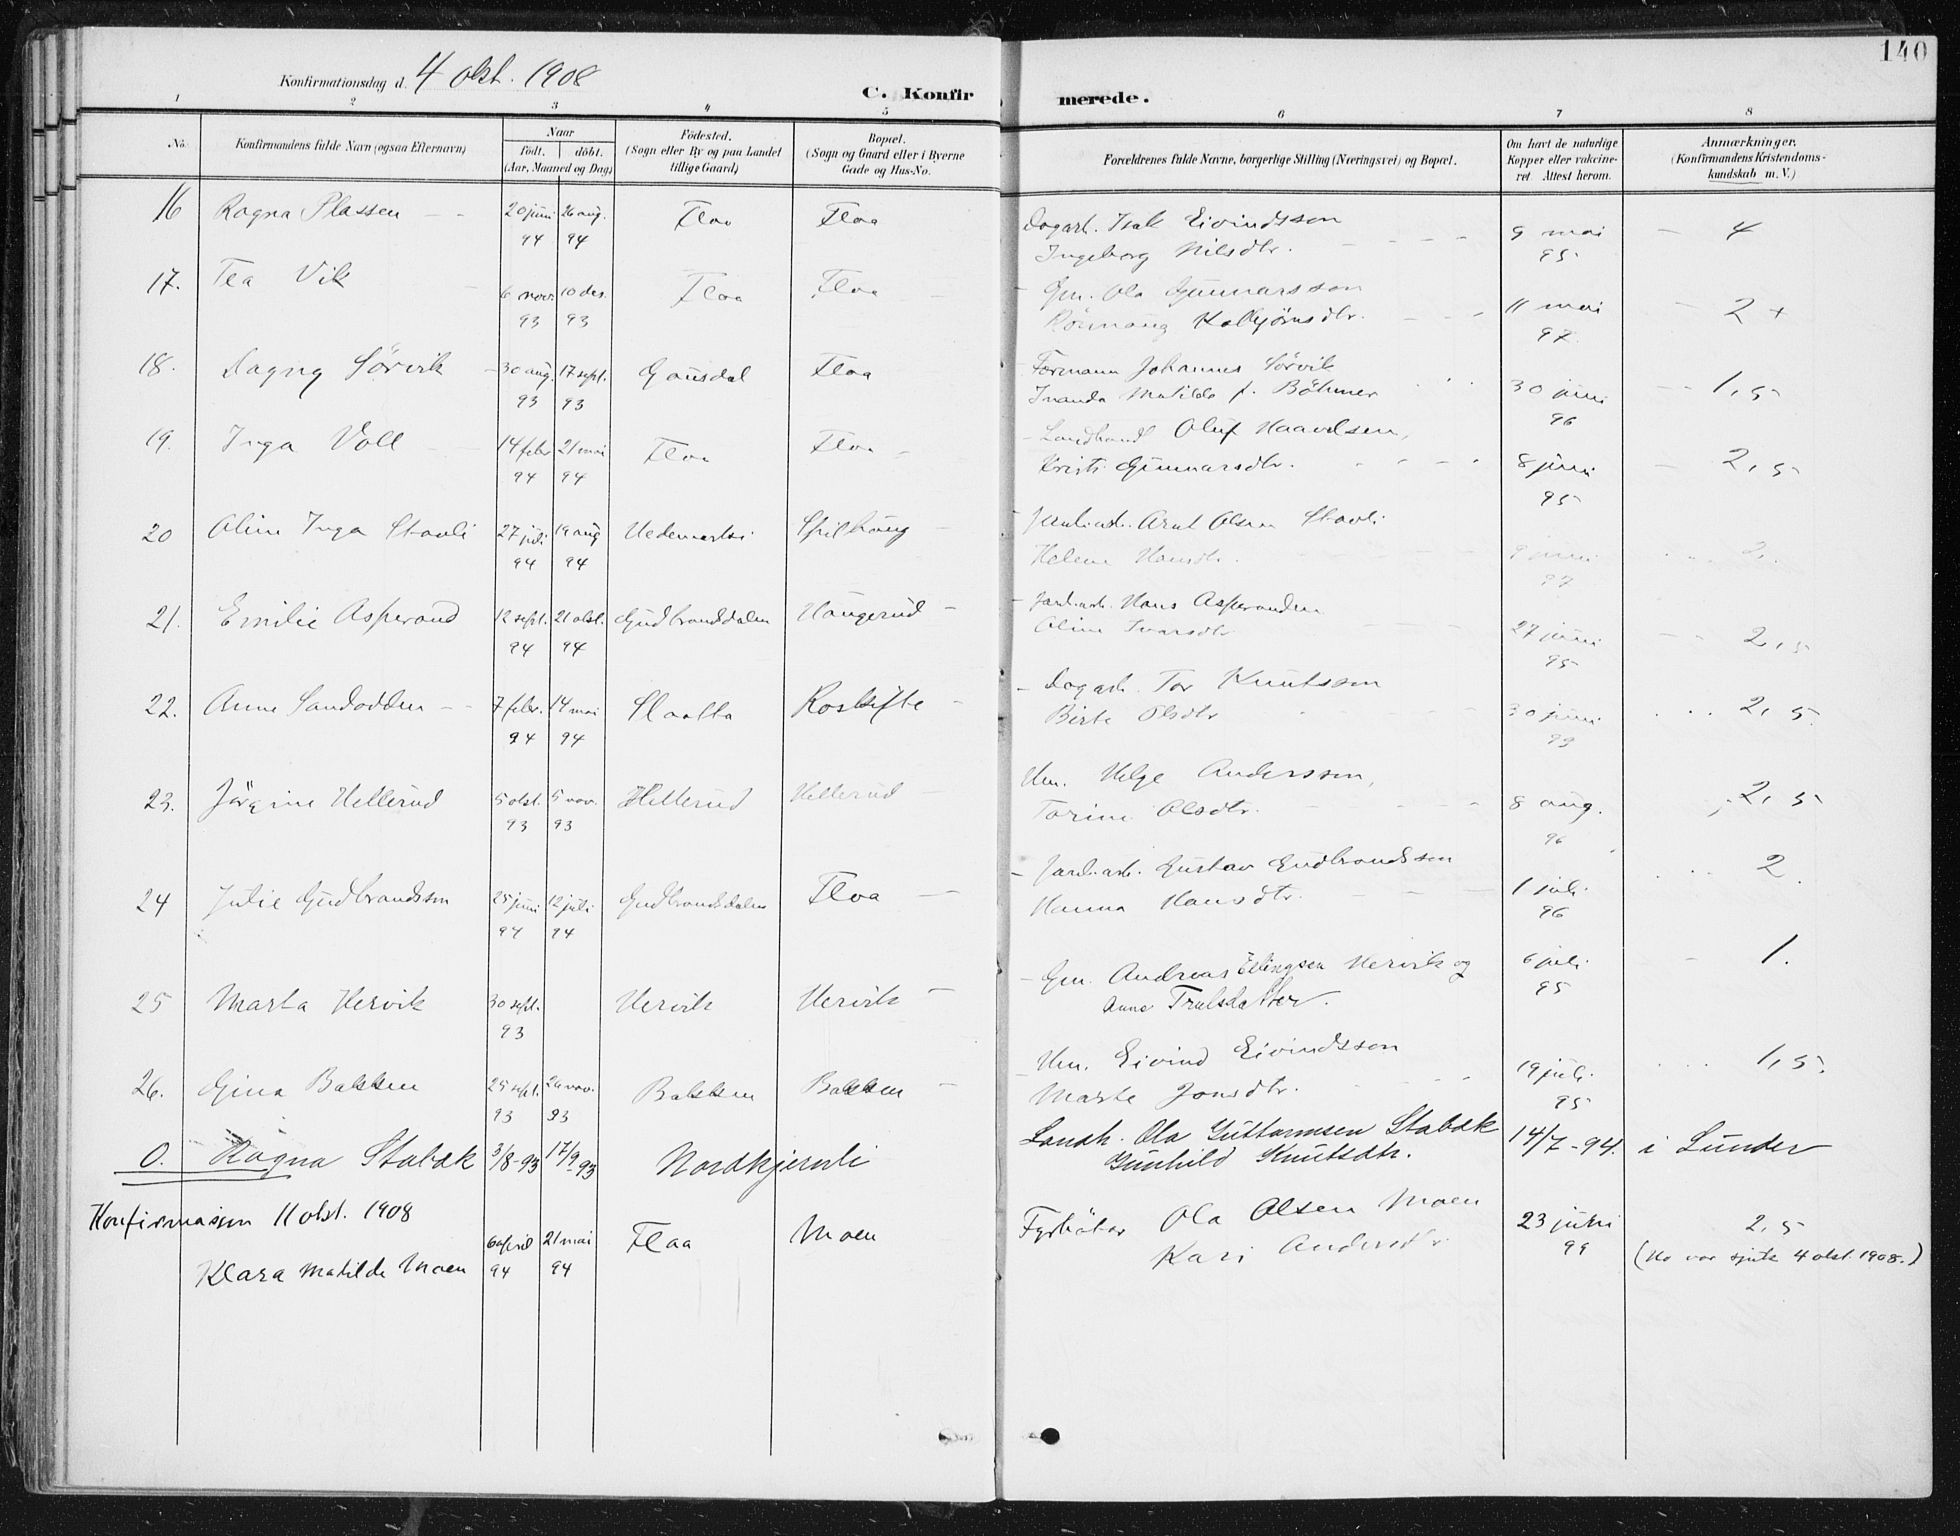 140
Konfirmationsdag d. 4 okt. 1908
C. Konfirmerede.
1 2 3 4 5 6 7 8
No. Konfirmandens fulde Navn (ogsaa Efternavn) Naar födt. döbt. (Aar, Maaned og Dag) Födested. (Sogn eller By og paa Landet tillige Gaard) Bopæl. (Sogn og Gaard eller i Byerne Gade og Hus-No. Forældrenes fulde Navne, borgerlige Stilling (Næringsvei) og Bopæl. Om havt de naturlige Kopper eller vakcineret. Attest herom. Anmærkninger. (Konfirmandens Kristendomskundskab m. V.)
16 Ragna Plassen 20 juni 26 aug. Flaa Flaa Dagarb. Isak Eivindsson 9 mai 4
94 94 Ingeborg Nilsdtr. 95
17. Tea Vik 6 nov. 10 des. Flaa Flaa Gm. Ola Gunnarsson 11 mai 2 +
93 93 Rönnaug Kolbjörnsdtr. 97.
18. Dagny Sörvik 30 aug. 17 sept. Gausdal Flaa Formann Johannes Sörvik 30 juni 1,5
93 93 Matilde f. Böhmer 96
19. Inga Voll 14 febr 21 mai Flaa Flaa Landhand. Oluf Haavelsen, 8 juni 2,5
94 94 Kristi Gunnarsdtr. 95
20 Aline Inga Stavli 27 juli 19 aug Hedemarken Spilhaug Arnt Olsen Stavli 9 juni 2.
94 94 Helene Hansdtr. 97
21. Emilie Asperand 12 sept. 21 okt. Gudbrandsdalen Haugerud Hans Asperanden 27 juni 2,5
94 94 Aline Ivarsdtr 95
22. Anne Sandodden 7 febr. 14 mai Slaatta Roskifte Dagarb. Tor Knutsson 30 juni 2,5.
94 94 Birte Olsdtr 99
23. Jörgine Hellerud 5 okt. 5 nov. Hellerud Hellerud Hm. Helge Andersson, 8 aug. 2,5
93 93 Torine Olsdtr. 96
24 Julie Gudbrandsson 25 juni 12 juli Gudbrandsdalen Flaa Gustav Gudbrandsson 1 juli 2.
94 94 Hanna Hansdtr. 96
25 Marta Hervik 30 sept. Hervik Hervik Gm. Andreas Ellingsen Hervik og 6 juli 1.
93 Anne Trulsdatter. 95
26. Gina Bakken 25 sept. 26 nov. Bakken Bakken Hm. Eivind Eivindsson 19 juli 1,5.
93 93 Marte Jonsdtr. 95
O. Ragna Stabæk 3/8-93 17/9 93 Nordkjernli Landh. Ola Guttormsen Stabæk 14/7-94. i Lunder
Gunhild Knutsdtr.
Konfirmasjon 11 okt. 1908
Klara Matilde Moen 6 april 21 mai Flaa Moen Fyrbötar Ola Olsen Moen 23 juni 2,5
94 94 Kari Andersdtr. 99 (Ho var sjuk 4 okt. 1908.)